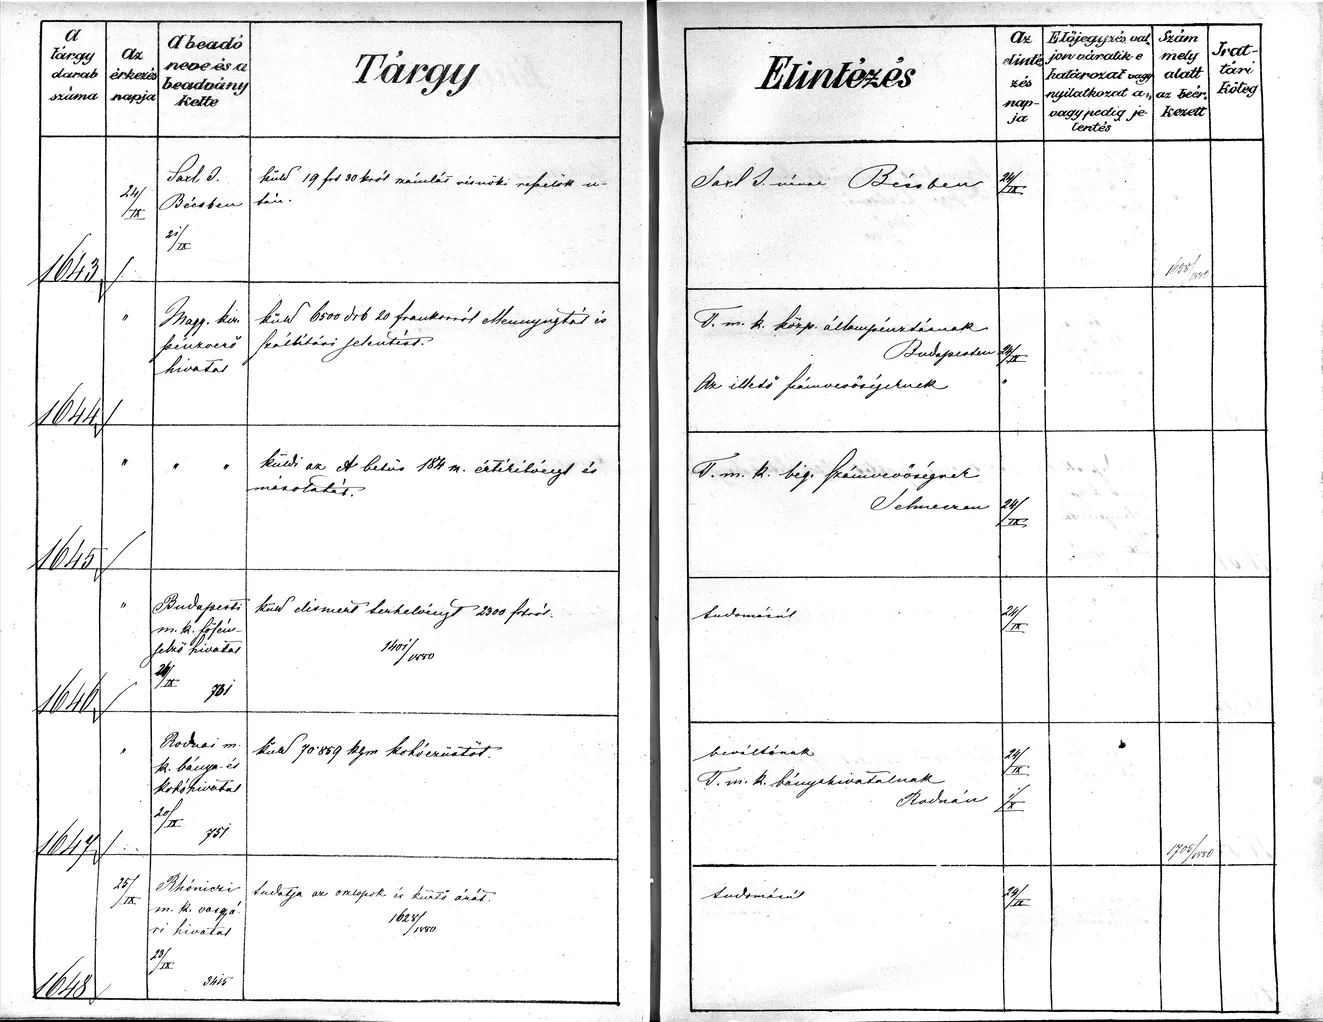 A tárgy darab száma
Az érkezés napja
A beadó neve és a beadvány kelte
Tárgy
Elintézés
Az elintézés napja
Előjegyzés, valjon váratik-e határozat vagy nyilatkozat a., vagy pedig jelentés
Szám mely alatt az beérkezett
Irattári köteg
1643
24/IX
Saxl I.
Bécsben
21/IX
küld 19 frt 30 krról számlát vésnöki
tán.
Saxl I. úrnak Bécsben
24/IX
1658/1880
1644
"
Magy. kir.
pénzverő
hivatal
küld 6500 drb 20 frankosról Mennyugtát és
szállítási jelentést.
T. m. k. közp. állampénztárnak
Budapesten
24/IX
Az illető számvevőségeknek
"
1645
" " "
küldi az A betűs 184 m. értékilvényt és
másolatát.
T. m. k. big. Számvevőségnek
Selmeczen
24/IX
1646
"
Budapesti
m. k. főfém-
jelző hivatal
IX 731
küld elismert terhelvényt 2300 frtról.
1401/1880
tudomásúl
24/IX
1647
"
Rodnai m.
k. bánya- és
kohóhivatal
20/IX
751
küld 70.859 kgm kohóezüstöt.
beváltónak
24/IX
T. m. k. bányahivatalnak
Rodnán
1/X
1705/1880
1648
25/IX
Rhóniczi
m. k. vasgyá-
ri hivatal
23/IX
3415
tudatja az oszlopok és kürtő árát.
1628/1880
tudomásúl
24/IX